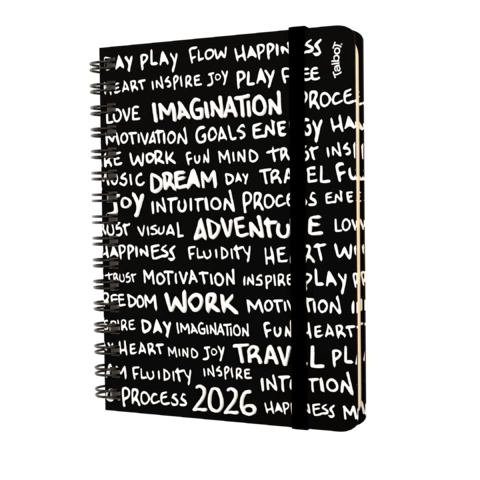 PLAY FLOW HAPPINESS
HEART INSPIRE JOY PLAY FREE
Talbot
LOVE IMAGINATION PROCE
MOTIVATION GOALS ENERGY HA
WORK FUN MIND TRUST INSPI
MUSIC DREAM DAY TRAVEL FU
JOY INTUITION PROCESS ENE
TRUST VISUAL ADVENTURE LOV
HAPPINESS FLUIDITY HEART W
TRUST MOTIVATION INSPIRE PLAY PR
FREEDOM WORK MOTIVATION
INSPIRE DAY IMAGINATION FUN HEART
HEART MIND JOY TRAVEL PL
FLUIDITY INSPIRE INTUITION
PROCESS 2026 HAPPINESS M